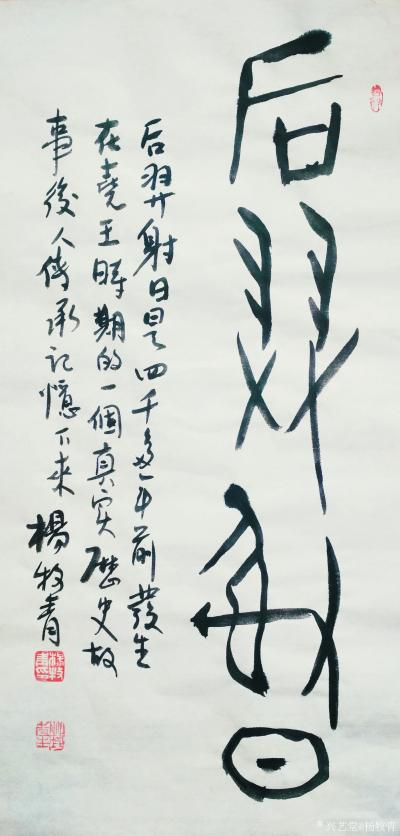 后羿射日
后羿射日是四千多年前發生
在堯王時期的一個真实歷史故
事後人傳承记憶下来
楊牧青
兴艺堂@杨牧青